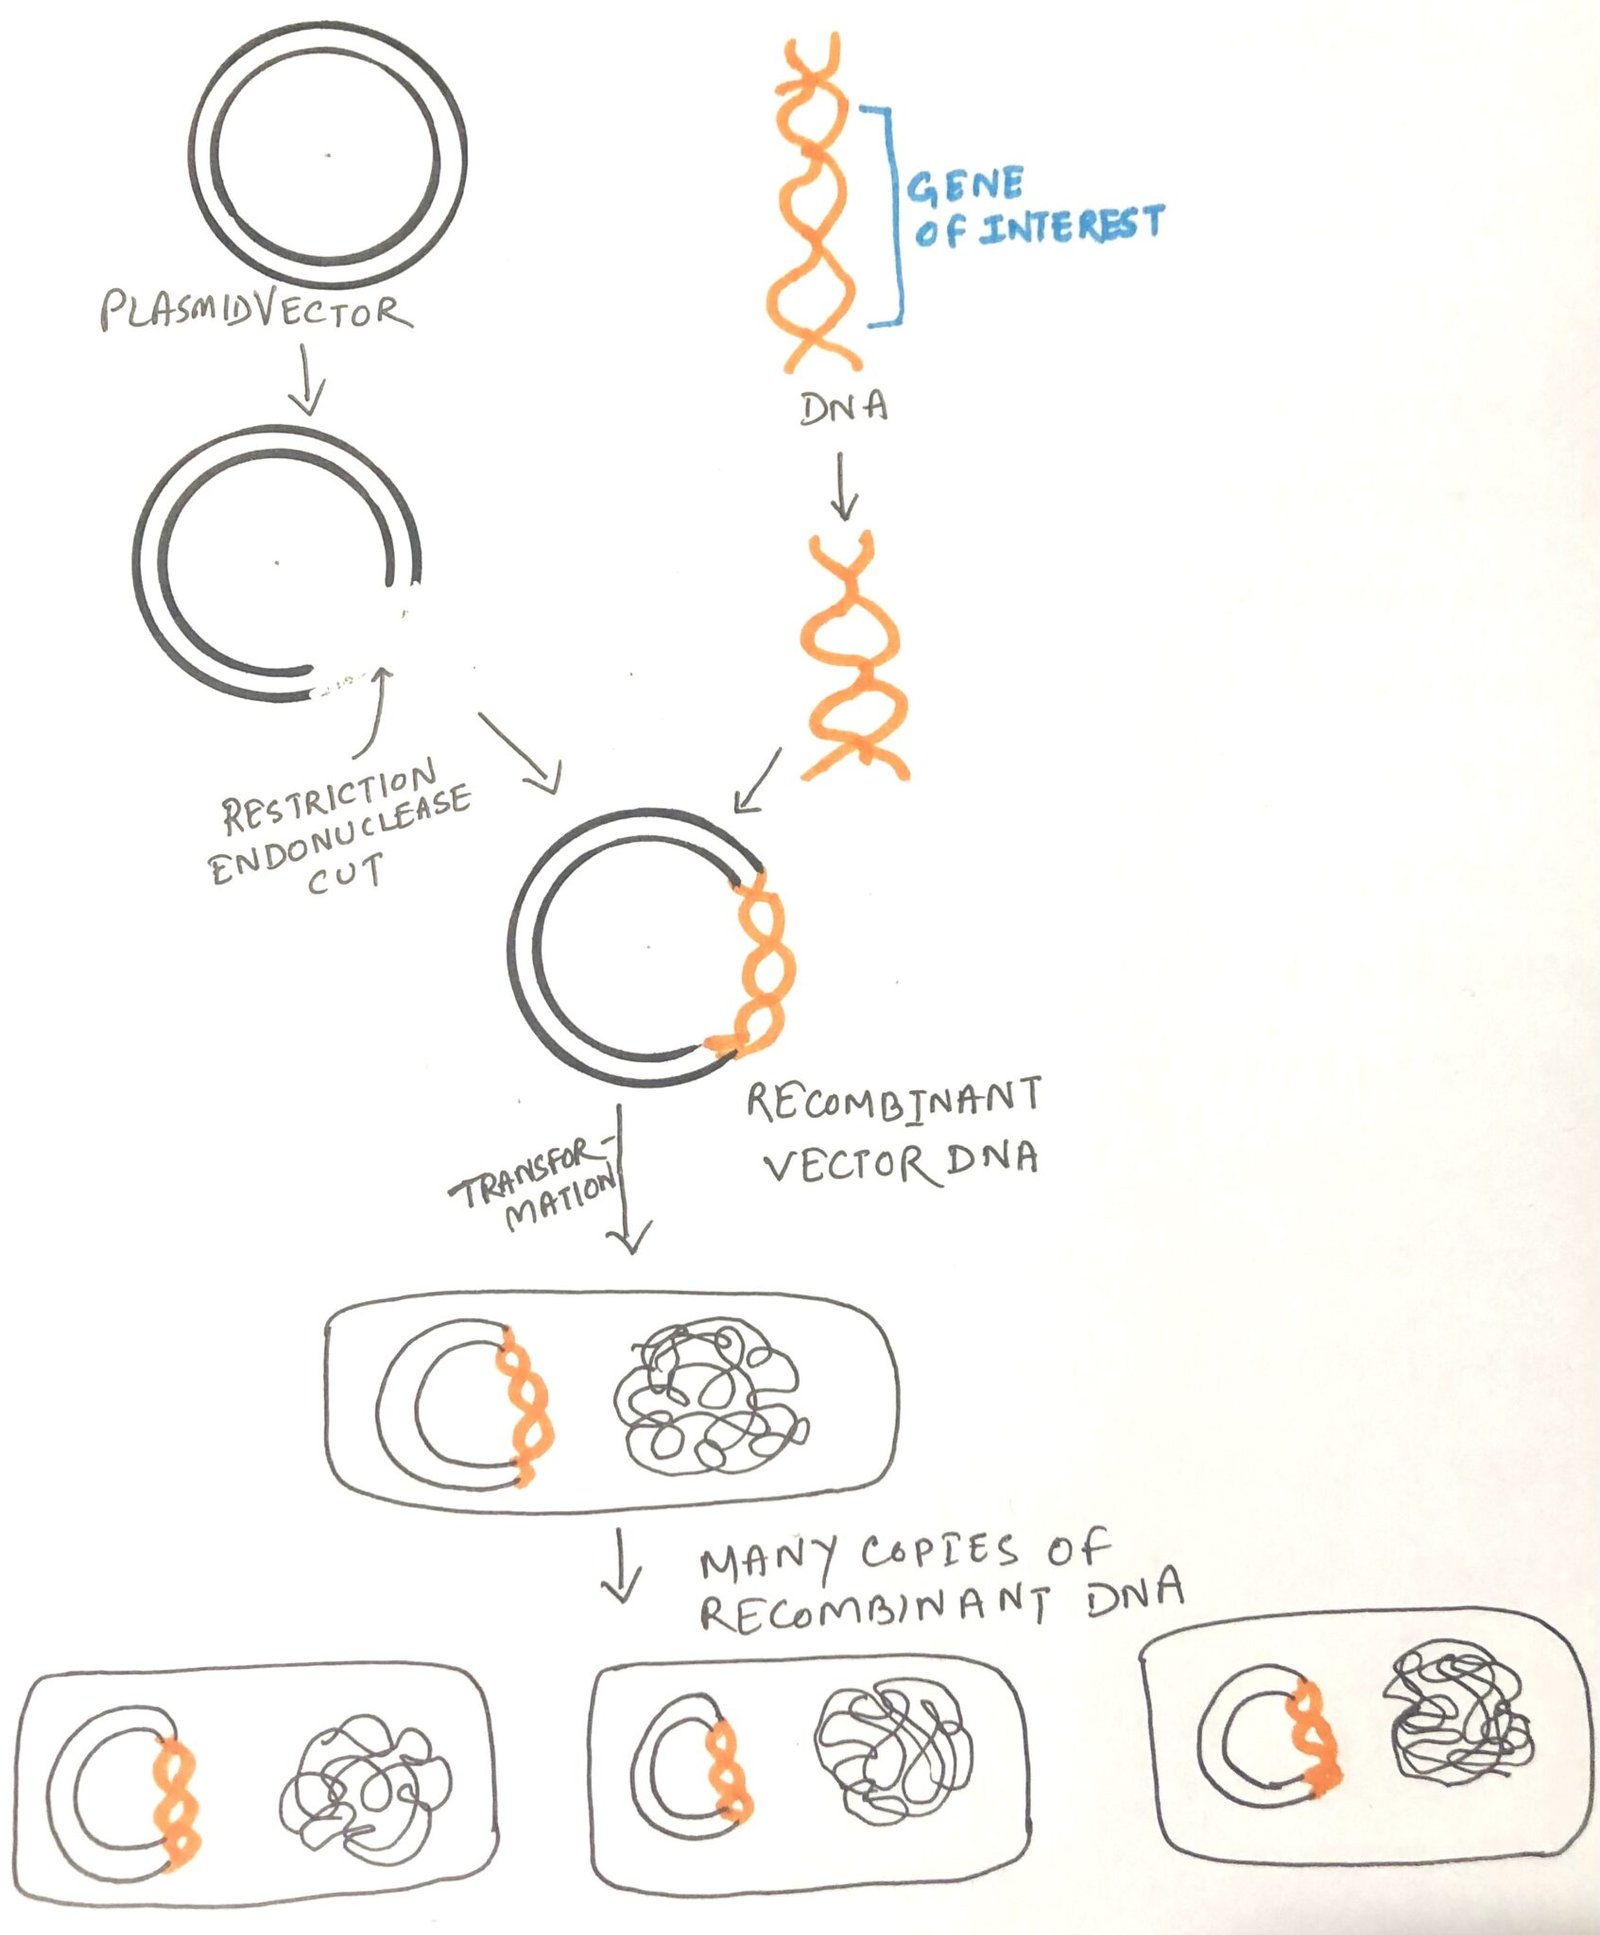 GENE
OF INTEREST
PLASMIDVECTOR
DNA
RESTRICTION
ENDONUCLEASE
CUT
RECOMBINANT
VECTOR DNA
TRANSFOR-
MATION
MANY COPIES OF
RECOMBINANT DNA